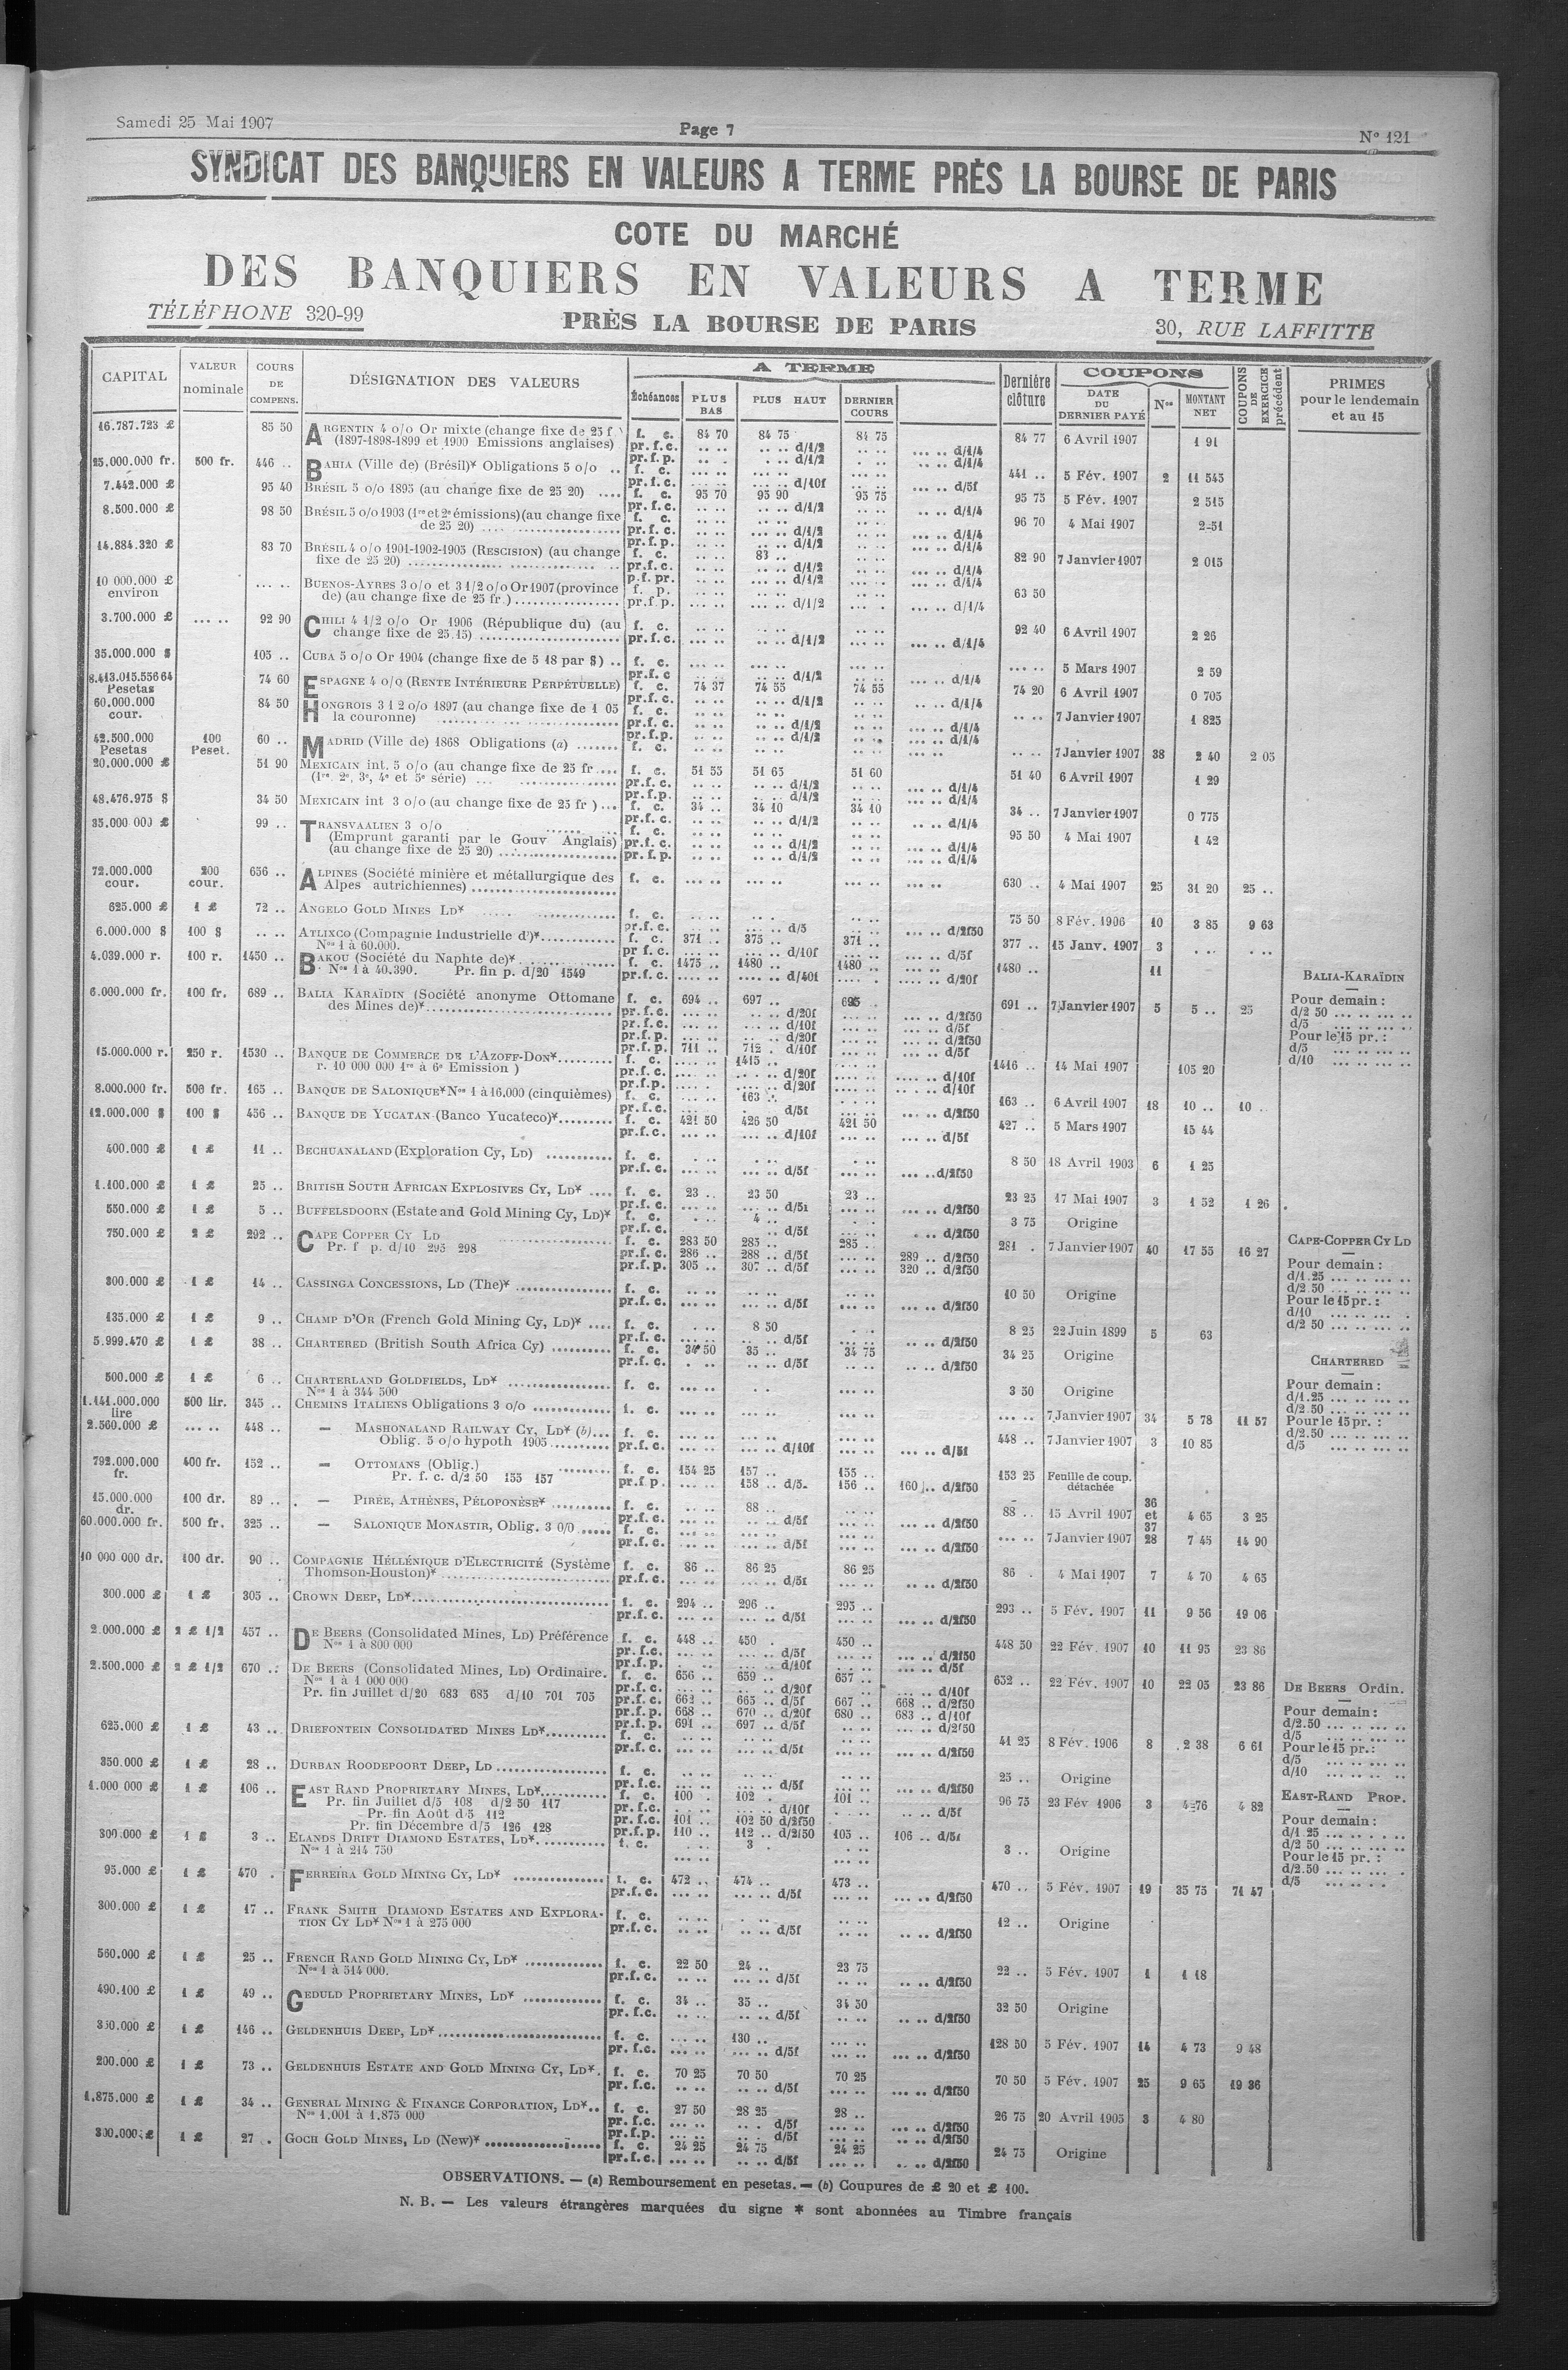 Samedi 25 Mai 1907
Page 7
N° 121
SYNDICAT DES BANQUIERS EN VALEURS A TERME PRÈS LA BOURSE DE PARIS
COTE DU MARCHÉ
DES BANQUIERS EN VALEURS A TERME
TÉLÉPHONE 320-99
PRÈS LA BOURSE DE PARIS
30, RUE LAFFITTE
CAPITAL
VALEUR nominale
COURS DE COMPENS.
DÉSIGNATION DES VALEURS
A TERME
Échéances
PLUS BAS
PLUS HAUT
DERNIER COURS
Dernière clôture
COUPONS
DATE DU DERNIER PAYÉ
Nos
MONTANT NET
COUPONS DE EXERCICE précédent
PRIMES
pour le lendemain
et au 15
16.787.723 £ 85 50 ARGENTIN 4 o/o Or mixte (change fixe de 25 f f. c. 84 70 84 75 84 75 84 77 6 Avril 1907 1 91
(1897-1898-1899 et 1900 Emissions anglaises) pr. f. c. .. .. d/1/2 ... .. d/1/4
pr. f. p. .. .. d/1/2 .. .. d/1/4
25.000.000 fr. 500 fr. 446 .. BAHIA (Ville de) (Brésil)* Obligations 5 o/o .. f. c. 441 .. 5 Fév. 1907 2 11 545
pr. f. c. d/10f ... .. d/5f
7.442.000 £ 95 40 BRÉSIL 5 o/o 1895 (au change fixe de 25 20) .... f. c. 95 70 95 90 95 75 95 75 5 Fév. 1907 2 515
pr. f. c. .. .. d/1/2 ... .. d/1/4
8.500.000 £ 98 50 BRÉSIL 5 o/o 1903 (1re et 2e émissions) (au change fixe f. c. 96 70 4 Mai 1907 2 51
de 25 20) pr. f. c. ... .. d/1/2 ... .. d/1/4
pr. f. p. .. .. d/1/2 ... .. d/1/4
14.884.320 £ 83 70 BRÉSIL 4 o/o 1901-1902-1905 (RESCISION) (au change f. c. 83 .. 82 90 7 Janvier 1907 2 015
fixe de 25 20) pr. f. c. .. .. d/1/2 ... .. d/1/4
p. f. pr. .. .. d/1/2 ... .. d/1/4
10 000.000 £ ... .. BUENOS-AYRES 3 o/o et 3 1/2 o/o Or 1907 (province f. p. 63 50
environ de) (au change fixe de 25 fr.) pr. f. p. .. .. d/1/2 ... .. d/1/4
3.700.000 £ ... .. 92 90 CHILI 4 1/2 o/o Or 1906 (République du) (au f. c. 92 40 6 Avril 1907 2 26
change fixe de 25.15) pr. f. c. .. .. d/1/2 ... .. d/1/4
35.000.000 $ 105 .. CUBA 5 o/o Or 1904 (change fixe de 5 18 par $) .. f. c. ... .. 5 Mars 1907 2 59
pr. f. c .. .. d/1/2 ... .. d/1/4
8.413.015.556 64 Pesetas 74 60 ESPAGNE 4 o/o (RENTE INTÉRIEURE PERPÉTUELLE) f. c. 74 37 74 55 74 55 74 20 6 Avril 1907 0 705
pr. f. c. .. .. d/1/2 .. .. d/1/4
60.000.000 cour. 84 50 HONGROIS 3 1 2 o/o 1897 (au change fixe de 1 05 f. c. .. .. 7 Janvier 1907 1 825
la couronne) pr. f. c. .. .. d/1/2 ... .. d/1/4
pr. f. p. .. .. d/1/2 ... .. d/1/4
42.500.000 Pesetas 100 Peset. 60 .. MADRID (Ville de) 1868 Obligations (a) f. c. .. .. 7 Janvier 1907 38 2 40 2 05
20.000.000 £ 51 90 MEXICAIN int. 5 o/o (au change fixe de 25 fr.... f. c. 51 55 51 65 51 60 51 40 6 Avril 1907 1 29
(1re, 2e, 3e, 4e et 5e série) pr. f. c. .. .. d/1/2 ... .. d/1/4
pr. f. p. .. .. d/1/2 ... .. d/1/4
48.476.975 $ 34 50 MEXICAIN int 3 o/o (au change fixe de 25 fr ) ... f. c. 34 .. 34 10 34 10 34 .. 7 Janvier 1907 0 775
pr. f. c. .. .. d/1/2 .. .. d/1/4
35.000 000 £ 99 .. TRANSVAALIEN 3 o/o f. c. 95 50 4 Mai 1907 1 42
(Emprunt garanti par le Gouv Anglais) pr. f. c. .. .. d/1/2 ... .. d/1/4
(au change fixe de 25 20) pr. f. p. .. .. d/1/2 ... .. d/1/4
72.000.000 cour. 200 cour. 656 .. ALPINES (Société minière et métallurgique des f. c. 630 .. 4 Mai 1907 25 31 20 25 ..
Alpes autrichiennes)
625.000 £ 1 £ 72 .. ANGELO GOLD MINES LD* f. c. 75 50 8 Fév. 1906 10 3 85 9 63
pr. f. c. ... .. d/5 ... .. d/2f50
6.000.000 $ 100 $ .. .. ATLIXCO (Compagnie Industrielle d')* f. c. 371 .. 375 .. 371 .. 377 .. 15 Janv. 1907 3
Nos 1 à 60.000. pr f. c. ... .. d/10f ... .. d/5f
4.039.000 r. 100 r. 1450 .. BAKOU (Société du Naphte de)* f. c. 1475 .. 1480 .. 1480 .. 1480 .. 11
Nos 1 à 40.390. Pr. fin p. d/20 1549 pr. f. c. .... .. d/40f .... .. d/20f
6.000.000 fr. 100 fr. 689 .. BALIA KARAÏDIN (Société anonyme Ottomane f. c. 694 .. 697 .. 695 691 .. 7 Janvier 1907 5 5 .. 25
des Mines de)* pr. f. c. ... .. d/20f ... .. d/2f50
pr. f. c. ... .. d/10f ... .. d/5f
pr. f. p. ... .. d/20f ... .. d/2f50
pr. f. p. 711 .. 712 . d/10f ... .. d/5f
BALIA-KARAÏDIN
Pour demain :
d/2 50 ... .. ... ..
d/5 ... .. ... ..
Pour le 15 pr. :
d/5 ... .. ... ..
d/10 ... .. ... ..
15.000.000 r. 250 r. 1530 .. BANQUE DE COMMERCE DE L'AZOFF-DON* f. c. 1415 .. 1416 .. 14 Mai 1907 105 20
r. 10 000 000 1re à 6e Emission ) pr. f. c. .... .. d/20f .... .. d/10f
pr. f. p. .... .. d/20f .... .. d/10f
8.000.000 fr. 500 fr. 165 .. BANQUE DE SALONIQUE* Nos 1 à 16.000 (cinquièmes) f. c. 163 .. 163 .. 6 Avril 1907 18 10 .. 10 ..
pr. f. c. d/5f ... .. d/2f50
12.000.000 $ 100 $ 456 .. BANQUE DE YUCATAN (Banco Yucateco)* f. c. 421 50 426 50 421 50 427 .. 5 Mars 1907 15 44
pr. f. c. ... .. d/10f ... .. d/5f
400.000 £ 1 £ 11 .. BECHUANALAND (Exploration Cy, LD) f. c. 8 50 18 Avril 1903 6 1 25
pr. f. c. ... .. d/5f ... .. d/2f50
1.100.000 £ 1 £ 25 .. BRITISH SOUTH AFRICAN EXPLOSIVES CY, LD* f. c. 23 .. 23 50 23 .. 23 25 17 Mai 1907 3 1 52 1 26
pr. f. c. ... .. d/5f ... .. d/2f50
550.000 £ 1 £ 5 .. BUFFELSDOORN (Estate and Gold Mining Cy, LD)* f. c. 4 .. 3 75 Origine
pr. f. c. .. .. d/5f ... .. d/2f50
750.000 £ 2 £ 292 .. CAPE COPPER CY LD f. c. 283 50 285 .. 285 .. 281 . 7 Janvier 1907 40 17 55 16 27
Pr. f p. d/10 295 298 pr. f. c. 286 .. 288 .. d/5f 289 .. d/2f50
pr. f. p. 305 .. 307 .. d/5f 320 .. d/2f50
CAPE-COPPER CY LD
Pour demain :
d/1.25 ... .. ... ..
d/2.50 ... .. ... ..
Pour le 15 pr. :
d/10 ... .. ... .
d/2 50 ... .. ... ..
300.000 £ 1 £ 14 .. CASSINGA CONCESSIONS, LD (The)* f. c. 10 50 Origine
pr. f. c. ... .. d/5f ... .. d/2f50
135.000 £ 1 £ 9 .. CHAMP D'OR (French Gold Mining Cy, LD)* .... f. c. 8 50 8 25 22 Juin 1899 5 63
pr. f. c. .. .. d/5f .. .. d/2f50
5.999.470 £ 1 £ 38 .. CHARTERED (British South Africa Cy) f. c. 34 50 35 .. 34 75 34 25 Origine
pr. f. c. .. .. d/5f .. .. d/2f50
CHARTERED
Pour demain :
d/1.25 ... .. ... ..
d/2.50 ... .. ... ..
Pour le 15 pr. :
d/2.50 ... .. ... ..
d/5 ... .. ... ..
500.000 £ 1 £ 6 .. CHARTERLAND GOLDFIELDS, LD* f. c. 3 50 Origine
Nos 1 à 344 500
1.141.000.000 lire 500 lir. 345 .. CHEMINS ITALIENS Obligations 3 o/o f. c. ... .. 7 Janvier 1907 34 5 78 11 57
2.560.000 £ ... .. 448 .. — MASHONALAND RAILWAY CY, LD* (b)... f. c. 448 .. 7 Janvier 1907 3 10 85
Oblig. 5 o/o hypoth 1905 pr. f. c. ... .. d/10f ... .. d/5f
792.000.000 fr. 400 fr. 152 .. — OTTOMANS (Oblig.) f. c. 154 25 157 .. 155 .. 153 25 Feuille de coup. détachée
Pr. f. c. d/2 50 155 157 pr. f. p. 158 .. d/5. 156 .. 160 .. d/2f50
15.000.000 dr. 100 dr. 89 .. — PIRÉE, ATHÈNES, PÉLOPONÈSE* f. c. 88 .. 88 .. 15 Avril 1907 36 et 37 4 65 3 25
pr. f. c. .. .. d/5f ... .. d/2f50
60.000.000 fr. 500 fr. 325 .. — SALONIQUE MONASTIR, Oblig. 3 0/0 ..... f. c. ... .. 7 Janvier 1907 28 7 45 14 90
pr. f. c. ... .. d/5f ... .. d/2f50
10 000 000 dr. 100 dr. 90 .. COMPAGNIE HÉLLÉNIQUE D'ELECTRICITÉ (Système f. c. 86 .. 86 25 86 25 86 . 4 Mai 1907 7 4 70 4 65
Thomson-Houston)* pr. f. c. ... .. d/5f .. .. d/2f50
300.000 £ 1 £ 305 .. CROWN DEEP, LD* f. c. 294 .. 296 .. 295 .. 293 .. 5 Fév. 1907 11 9 56 19 06
pr. f. c. ... .. d/5f ... .. d/2f50
2.000.000 £ 2 £ 1/2 457 .. DE BEERS (Consolidated Mines, LD) Préférence f. c. 448 .. 450 . 450 .. 448 50 22 Fév. 1907 10 11 95 23 86
Nos 1 à 800 000 pr. f. c. ... .. d/5f d/2f50
pr. f. p. ... .. d/10f ... .. d/5f
2.500.000 £ 2 £ 1/2 670 .. DE BEERS (Consolidated Mines, LD) Ordinaire. f. c. 656 .. 659 .. 657 .. 652 .. 22 Fév. 1907 10 22 05 23 86
Nos 1 à 1 000 000 pr. f. c. ... .. d/20f ... .. d/10f
Pr. fin Juillet d/20 683 685 d/10 701 705 pr. f. c. 662 .. 665 .. d/5f 667 .. 668 .. d/2f50
pr. f. p. 668 .. 670 .. d/20f 680 .. 683 .. d/10f
pr. f. p. 691 .. 697 .. d/5f ... .. d/2f50
DE BEERS Ordin.
Pour demain :
d/2.50 ... .. ... ..
d/5 ... .. ... ..
Pour le 15 pr. :
d/5 ... .. ... ..
d/10 ... .. ... ..
625.000 £ 1 £ 43 .. DRIEFONTEIN CONSOLIDATED MINES LD* f. c. 41 25 8 Fév. 1906 8 2 38 6 61
pr. f. c. ... .. d/5f ... .. d/2f50
350.000 £ 1 £ 28 .. DURBAN ROODEPOORT DEEP, LD f. c. 25 .. Origine
pr. f. c. .. .. d/5f ... .. d/2f50
1.000 000 £ 1 £ 106 .. EAST RAND PROPRIETARY MINES, LD* f. c. 100 . 102 . 101 .. 96 75 23 Fév 1906 3 4 76 4 82
Pr. fin Juillet d/5 108 d/2 50 117 pr. f. c. ... .. d/10f ... .. d/5f
Pr. fin Août d 5 112 pr. f. c. 101 .. 102 50 d/2f50
Pr. fin Décembre d/5 126 128 pr. f. p. 110 .. 112 .. d/2f50 105 .. 106 .. d/5f
EAST-RAND PROP.
Pour demain :
d/1 25 ... .. . .. ..
d/2 50 ... .. ... ..
Pour le 15 pr. :
d/2.50 ... .. ... .
d/5 ... .. . .
300.000 £ 1 £ 3 .. ELANDS DRIFT DIAMOND ESTATES, LD* f. c. 3 . 3 .. Origine
Nos 1 à 214 750
95.000 £ 1 £ 470 . FERREIRA GOLD MINING CY, LD* f. c. 472 .. 474 .. 473 .. 470 .. 5 Fév. 1907 19 35 75 71 47
pr. f. c. ... .. d/5f ... .. d/2f50
300.000 £ 1 £ 17 .. FRANK SMITH DIAMOND ESTATES AND EXPLORA- f. c. 12 .. Origine
TION CY LD* Nos 1 à 275 000 pr. f. c. .. .. d/5f .. .. d/2f50
560.000 £ 1 £ 25 .. FRENCH RAND GOLD MINING CY, LD* f. c. 22 50 24 .. 23 75 22 .. 5 Fév. 1907 1 1 18
Nos 1 à 514 000. pr. f. c. ... .. d/5f .. .. d/2f50
490.100 £ 1 £ 49 .. GEDULD PROPRIETARY MINES, LD* f. c. 34 .. 35 .. 34 50 32 50 Origine
pr. f. c. .. .. d/5f .. .. d/2f50
350.000 £ 1 £ 146 .. GELDENHUIS DEEP, LD* f. c. 130 .. 128 50 5 Fév. 1907 14 4 73 9 48
pr. f. c. ... .. d/5f ... .. d/2f50
200.000 £ 1 £ 73 .. GELDENHUIS ESTATE AND GOLD MINING CY, LD*. f. c. 70 25 70 50 70 25 70 50 5 Fév. 1907 25 9 65 19 36
pr. f. c. .. .. d/5f ... .. d/2f50
1.875.000 £ 1 £ 34 .. GENERAL MINING & FINANCE CORPORATION, LD*.. f. c. 27 50 28 25 28 .. 26 75 20 Avril 1905 3 4 80
Nos 1.001 à 1.875 000 pr. f. c. .. . d/5f ... .. d/2f50
pr. f. p. .. . d/5f ... .. d/2f50
300.000 £ 1 £ 27 . GOCH GOLD MINES, LD (New)* f. c. 24 25 24 75 24 25 24 75 Origine
pr. f. c. .. .. d/5f .. .. d/2f50
OBSERVATIONS. — (a) Remboursement en pesetas. — (b) Coupures de £ 20 et £ 100.
N. B. — Les valeurs étrangères marquées du signe * sont abonnées au Timbre français